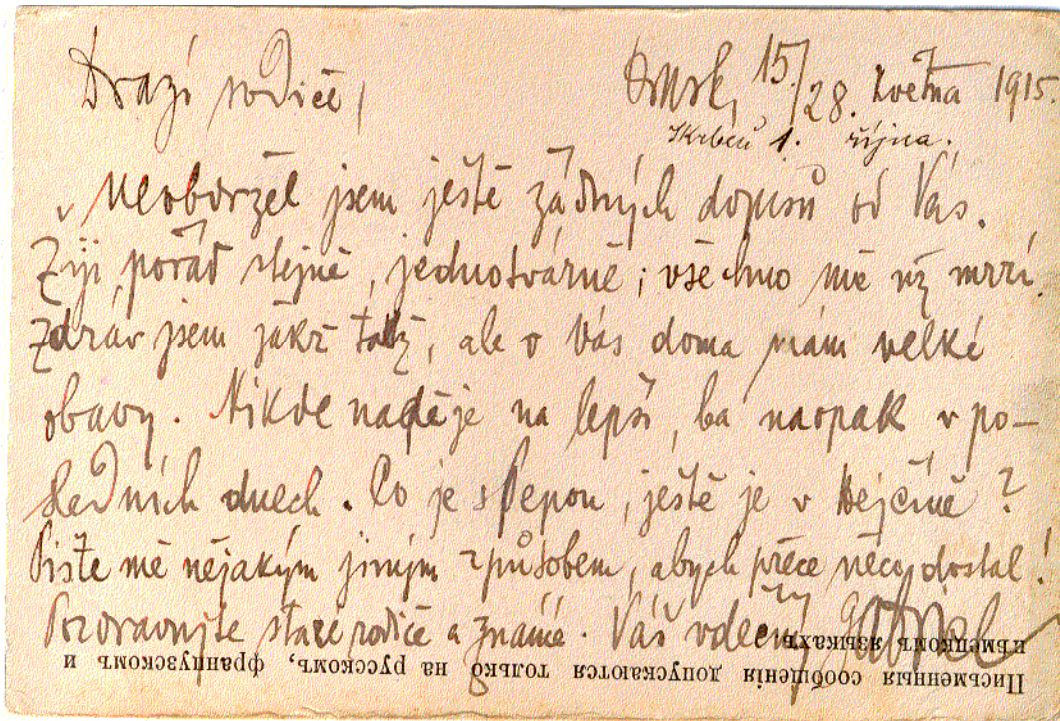 Drazí rodiče, Omsk, 15./28. května 1915
Skrbeň 1. října.
Neobdržel jsem ještě žádných dopisů od Vás.
Žiji pořád stejně, jednotvárně; všechno mě už mrzí.
Zdráv jsem jakž takž, ale o Vás doma mám velké
obavy. Nikde naděje na lepší, ba naopak v po-
sledních dnech. Co je s Pepou, ještě je v Hejčíně?
Pište mě nějakým jiným způsobem, abych přece něco dostal!
Pozdravujte staré rodiče a známé. Váš vděčný
Письменныя сообщенія допускаются только на русскомъ, французскомъ и
нѣмецкомъ языкахъ